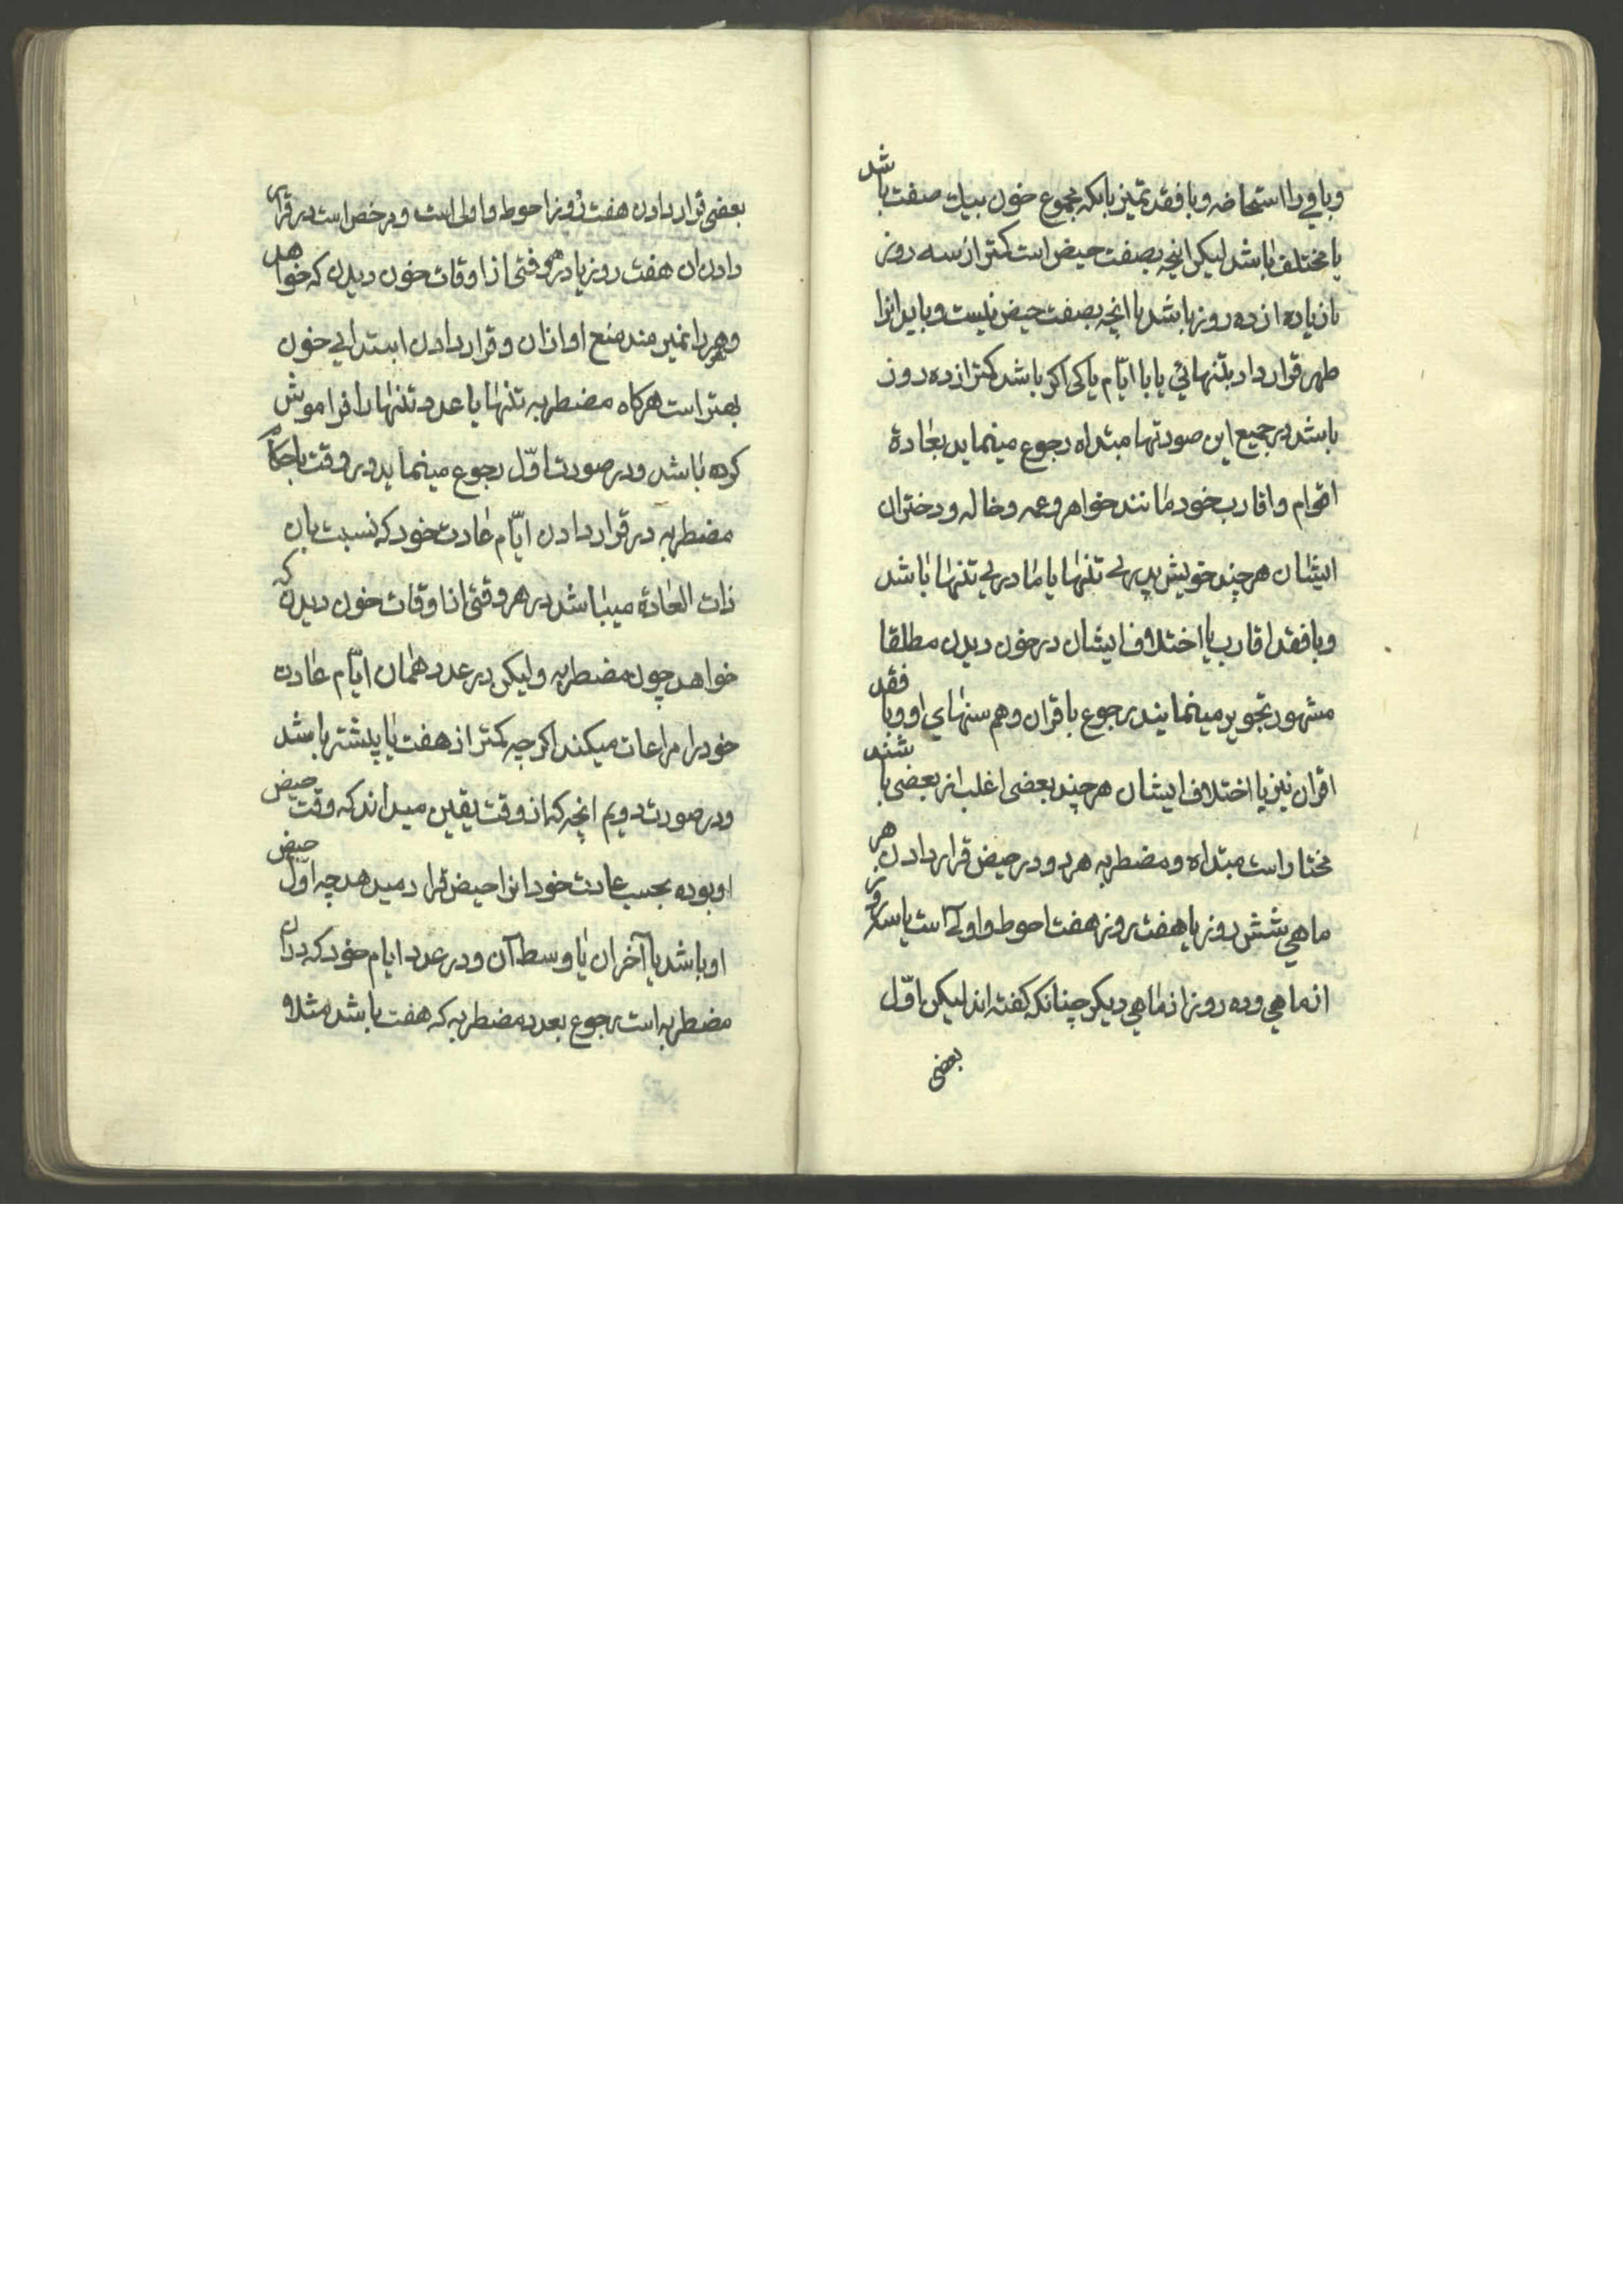 وباقي را استحاضه وبا فقد تميز بابكه مجموع خون بيك صفت باشد
يا مختلف باشد ليكن انچه بصفت حيض است كمتر از سه روز
يا زياده از ده روز باشد يا انچه بصفت حيض نيست وبايد انرا
طهر قرار داد بتنهائي يا با ايّام پاكى اكر باشد كمتر از ده روز
باشد در جميع اين صورتها مبتداه رجوع مينمايد بعادة
اقوام واقارب خود مانند خواهر وعمه وخاله ودختران
ايشان هر چند خويش پدرى تنها يا مادرى تنها باشد
وبا فقد اقارب يا اختلاف ايشان در خون ديدن مطلقا
مشهور تجويز مينمايند رجوع باقران وهم سنهاي او وبا فقد
اقران نيز يا اختلاف ايشان هر چند بعضى اغلب از بعضى باشند
مختار است مبتداه ومضطربه هر دو در حيض قرار دادن هر
ماهي شش روز يا هفت روز هفت احوط واولى است يا سه روز
از ماهي وده روز از ماهي ديكر چنانكه كفته اند ليكن اوّل
بعضى
بعضى قرار دادن هفت روز احوط واولى است ومرخص است در قرار
دادن ان هفت روز يا در هر وقتى از اوقات خون ديدن كه خواهد
وهر را نميرسد منع او ازان وقرار دادن ابتداي خون
بهتر است هركاه مضطربه تنها يا عدد تنها را فراموش
كرده باشد ودر صورت اوّل رجوع مينمايد در وقت باحكام
مضطربه در قرار دادن ايّام عادت خود كه نسبت بان
ذات العادة ميباشد در هر وقتى از اوقات خون ديدن كه
خواهد چون مضطربه وليكن در عدد همان ايّام عادت
خود را مراعات ميكند اكر چه كمتر از هفت يا پيشتر باشد
ودر صورت دويم انچه كه از وقت يقين ميداند كه وقت حيض
او بوده بحسب عادت خود انرا حيض قرار ميدهد چه اوّل حيض
او باشد يا آخر ان يا وسط آن ودر عدد ايام خود كه دران
مضطربه است رجوع بعدد مضطربه كه هفت باشد مثلا